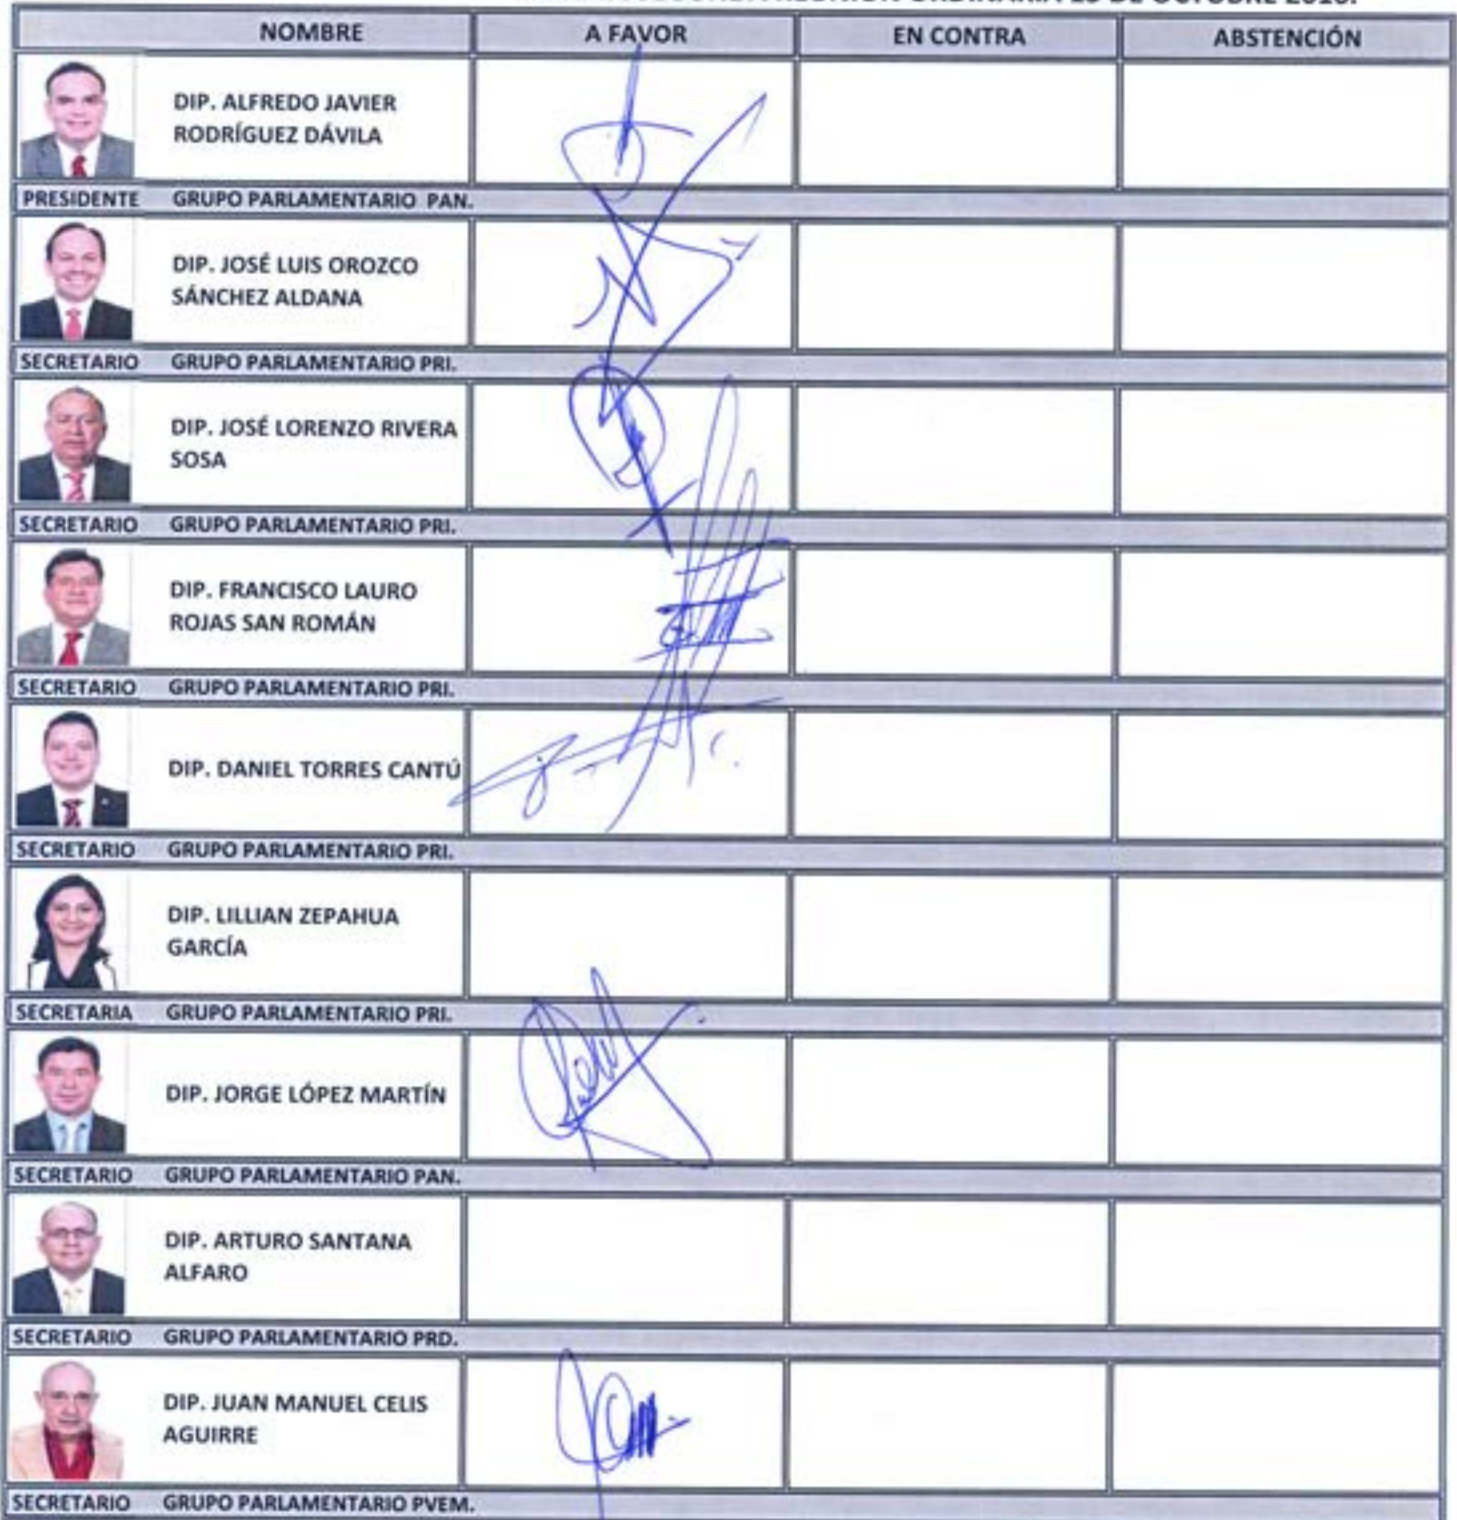 REUNIÓN ORDINARIA DE OCTUBRE
NOMBRE A FAVOR EN CONTRA ABSTENCIÓN
DIP. ALFREDO JAVIER
RODRÍGUEZ DÁVILA
PRESIDENTE GRUPO PARLAMENTARIO PAN.
DIP. JOSÉ LUIS OROZCO
SÁNCHEZ ALDANA
SECRETARIO GRUPO PARLAMENTARIO PRI.
DIP. JOSÉ LORENZO RIVERA
SOSA
SECRETARIO GRUPO PARLAMENTARIO PRI.
DIP. FRANCISCO LAURO
ROJAS SAN ROMÁN
SECRETARIO GRUPO PARLAMENTARIO PRI.
DIP. DANIEL TORRES CANTÚ
SECRETARIO GRUPO PARLAMENTARIO PRI.
DIP. LILLIAN ZEPAHUA
GARCÍA
SECRETARIA GRUPO PARLAMENTARIO PRI.
DIP. JORGE LÓPEZ MARTÍN
SECRETARIO GRUPO PARLAMENTARIO PAN.
DIP. ARTURO SANTANA
ALFARO
SECRETARIO GRUPO PARLAMENTARIO PRD.
DIP. JUAN MANUEL CELIS
AGUIRRE
SECRETARIO GRUPO PARLAMENTARIO PVEM.